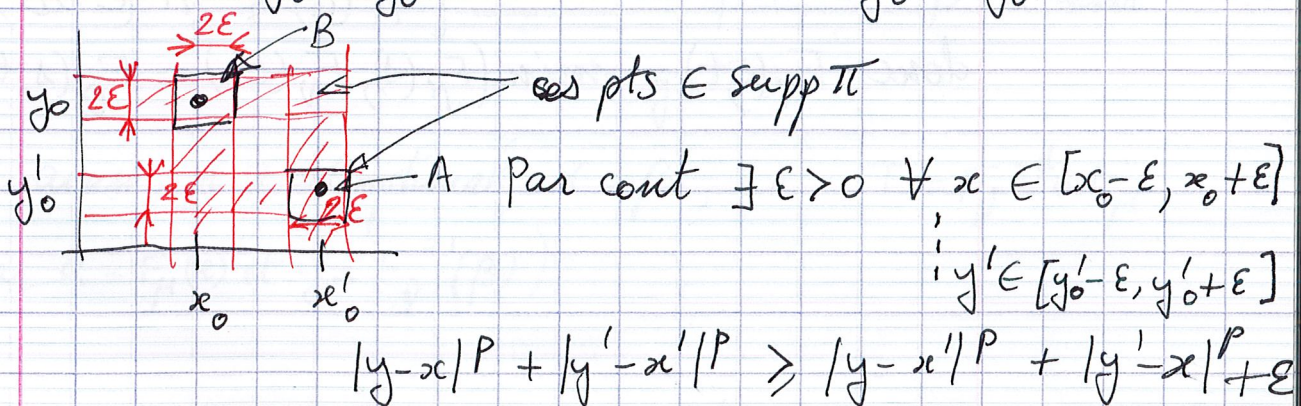 2ε
B
y₀
2ε
ces pts ∈ Supp Π
y'₀
2ε
A
2ε
Par cont ∃ ε>0 ∀ x ∈ [x₀-ε, x₀+ε]
⋮
y' ∈ [y'₀-ε, y'₀+ε]
x₀
x'₀
|y-x|^p + |y'-x'|^p ⩾ |y-x'|^p + |y'-x|^p +ε